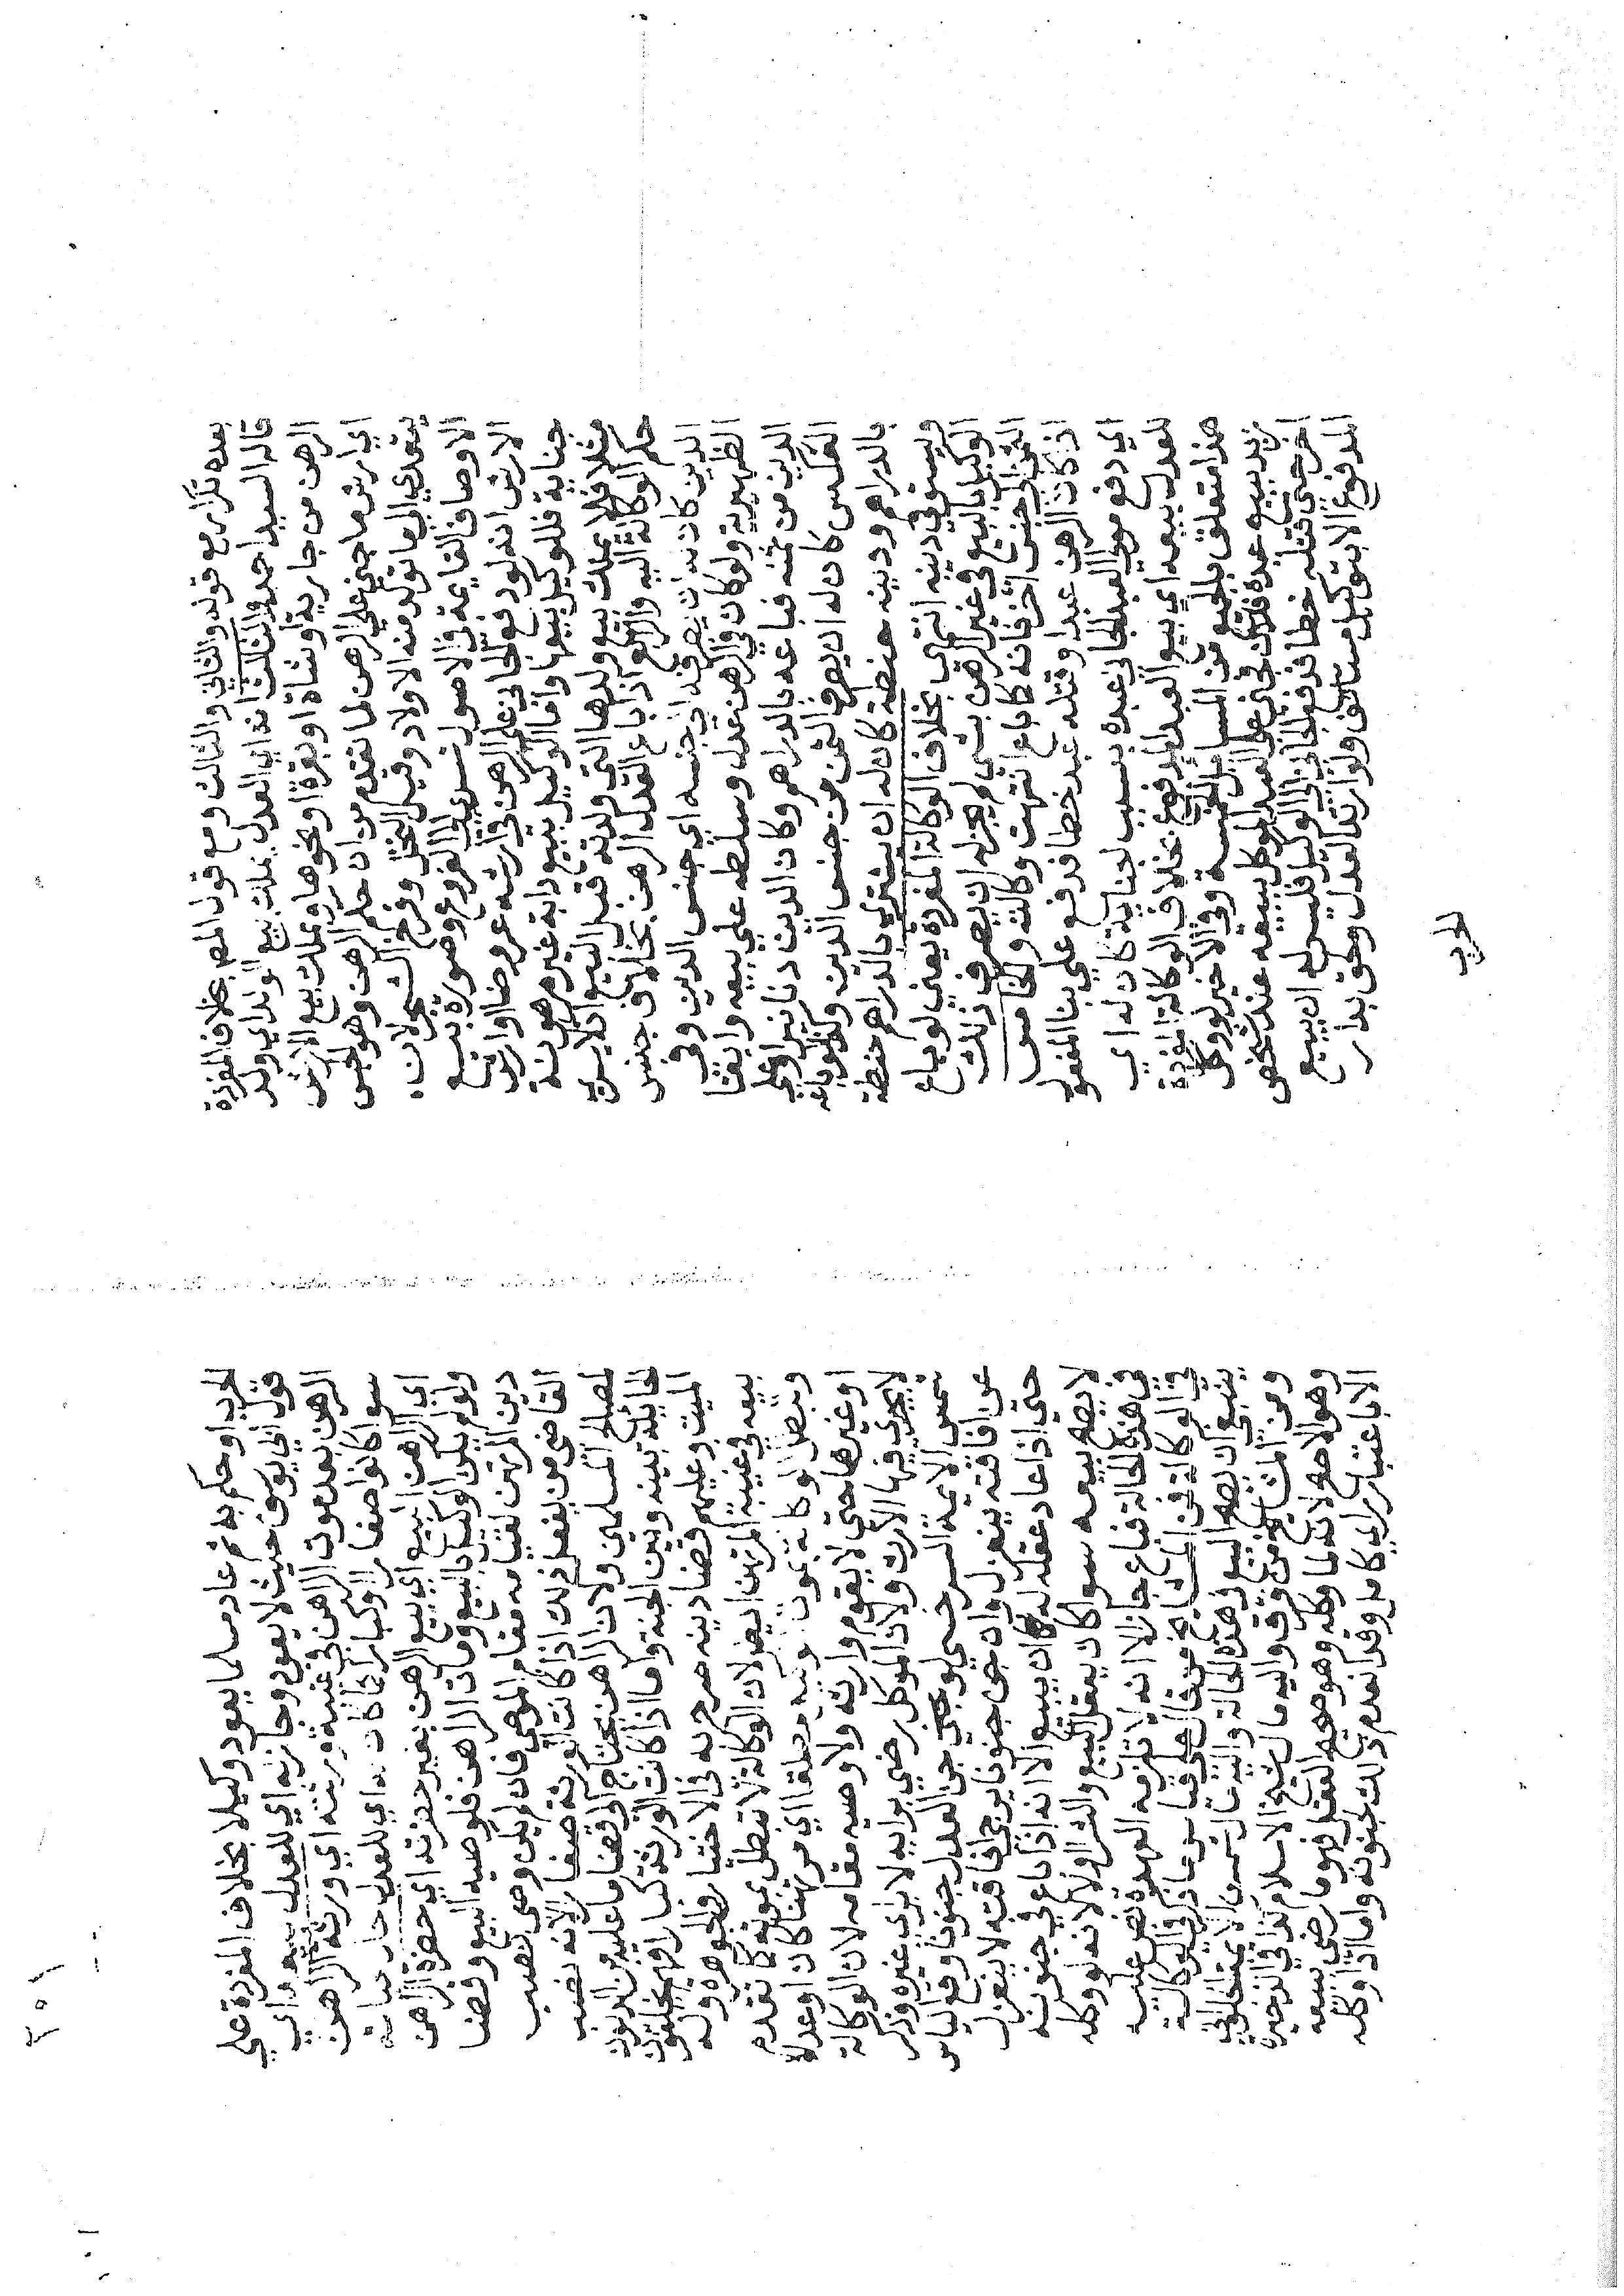 بعده تكرار مع قوله والثاني والثالث ومع قول المص بخلاف المفردة
قاله السيد احمد والثالث انه اي العدل يملك بيع الولد اي ولد
الرهن من جارية او شاة او بقرة او نحوها ويملك بيع الارش
اي ارش ما جني علي الرهن لما تقدم من ان حكم الرهن وهو الحبس
يتعدي الي ما تولد منه الاولاد وقيل النخل وفرخ الشجر لان
الاوصاف القايمة في الاصول تسري الي الفروع وصورة بيع
الارش انه لو دفع الجاني علي الرهن في ارشه عروضا او ارش
جناية فللوكيل بيعها واما الوكيل ببيع دابة غير مرهونة
مثلا فلا يملك بيع ولدها التي ولدته قبل البيع اذ لا يسري
حكم الوكالة اليه والرابع اذا باع العدل الرهن بخلاف جنس
الدين كان له ان يصرفه الي جنسه اي جنس الدين وفي
الظهيرية ولو كان في الرهن عدل وسلطه علي بيعه وايفا
الدين من ثمنه فباعه بالدراهم وكان الدين دنانير او علي
العكس كان له ان يصرف الثمن من جنس الدين وكذا لو باعه
بالدراهم ودينه حنطة كان له ان يشتري بالدراهم حنطة
ويستوفي دينه انتهي بخلاف الوكالة المفردة يعني لو باع
الوكيل بالبيع في غير الرهن بشي لم يجز له ان يصرف ذلك
الثمن الي جنس اخر فانه كما باع انتهت وكالته والخامس
اذ كان الرهن عبدا وقتله عبد خطا فدفع علي بنا المفعول
اي دفع مولي العبد الجاني عبده بسبب الجناية كان له اي
للعدل بيعه اي بيع العبد المدفوع بخلاف الوكالة المفردة
هذا متعلق بالجميع من المسايل الخمسة وفي الاخير لو وكل
زيد ببيع عبده فلان فجني علي العبد الموكل ببيعه عند شخص
اخر حتي قتله خطا فدفع الجاني الي الوكيل فليس له ان يبيع
المدفوع الا بتوكيل مستانف ولو ارتد العدل ولحق بدار
الحرب
الحرب او حكم به ثم عاد مسلما يعود وكيلا بخلاف المفردة علي
قول ابي يوسف حيث لا يعود وجاز له اي للعدل بيعه اي
الرهن بعد موت الراهن في غيبة ورثته اي ورثة الراهن
سوا كانوا صغارا او كبارا كما كان له اي للعدل حال حياته
اي الراهن البيع اي بيع الرهن بغير حضرته اي حضرة الراهن
ولو لم يكن الوكيل بالبيع ومات الراهن فلوصيه البيع وقضا
دين المرتهن لقيامه مقام الموصي فان لم يكن وصي نصب
القاضي من يفعل ذلك اذا كانت الورثة صغارا لانه نصب
لمصالح المسلمين ولان الراهن يحتاج الي قضا ما عليه من الديون
الحايلة بينه وبين الجنة واما اذا كانت الورثة كبارا فهم يخلفون
الميت وعليهم قضا دينه صرح به في الاختيار والجوهرة وله
بيعه في غيبة المرتهن ايضا لان الوكالة لا تبطل بموته كما تقدم
وتبطل الوكالة بموت الوكيل مطلقا اي مرتهنا كان او عدلا
او غيرها حتي لا يقوم وارثه ولا وصيه مقامه لان الوكالة
لا يجري فيها الارث ولان الموكل رضي برايه لا براي غيره وذكر
شمس الايمة السرخسي لو جن العدل جنونا وقع الياس
عن افاقته ينعزل وان جن جنونا يرجي افاقته لا ينعزل
حتي اذا عاد عقله له كان ان يبيع الا انه اذا باع في جنونه
لا يصح بيعه سوا كان يعقل البيع والشرا اولا لانه لو وكله
في هذه الحالة فباع جاز الا انه لا تلزمه العهدة نص عليه
في الوكالة فمن المشايخ من قال علي قياس ما ذكر في الوكالة
ينبغي ان يصح البيع في هذه الحالة واليه مال شمس الايمة الحلواني
ومن المشايخ من فرق واليه مال شيخ الاسلام كذا في الذخيرة
وهو الاصح لانه لما وكله وهو صحيح العقل فهو ما رضي ببيعه
الا باعتبار راي كامل وقد انعدم ذلك لجنونه واما اذا وكله
٢٥٩